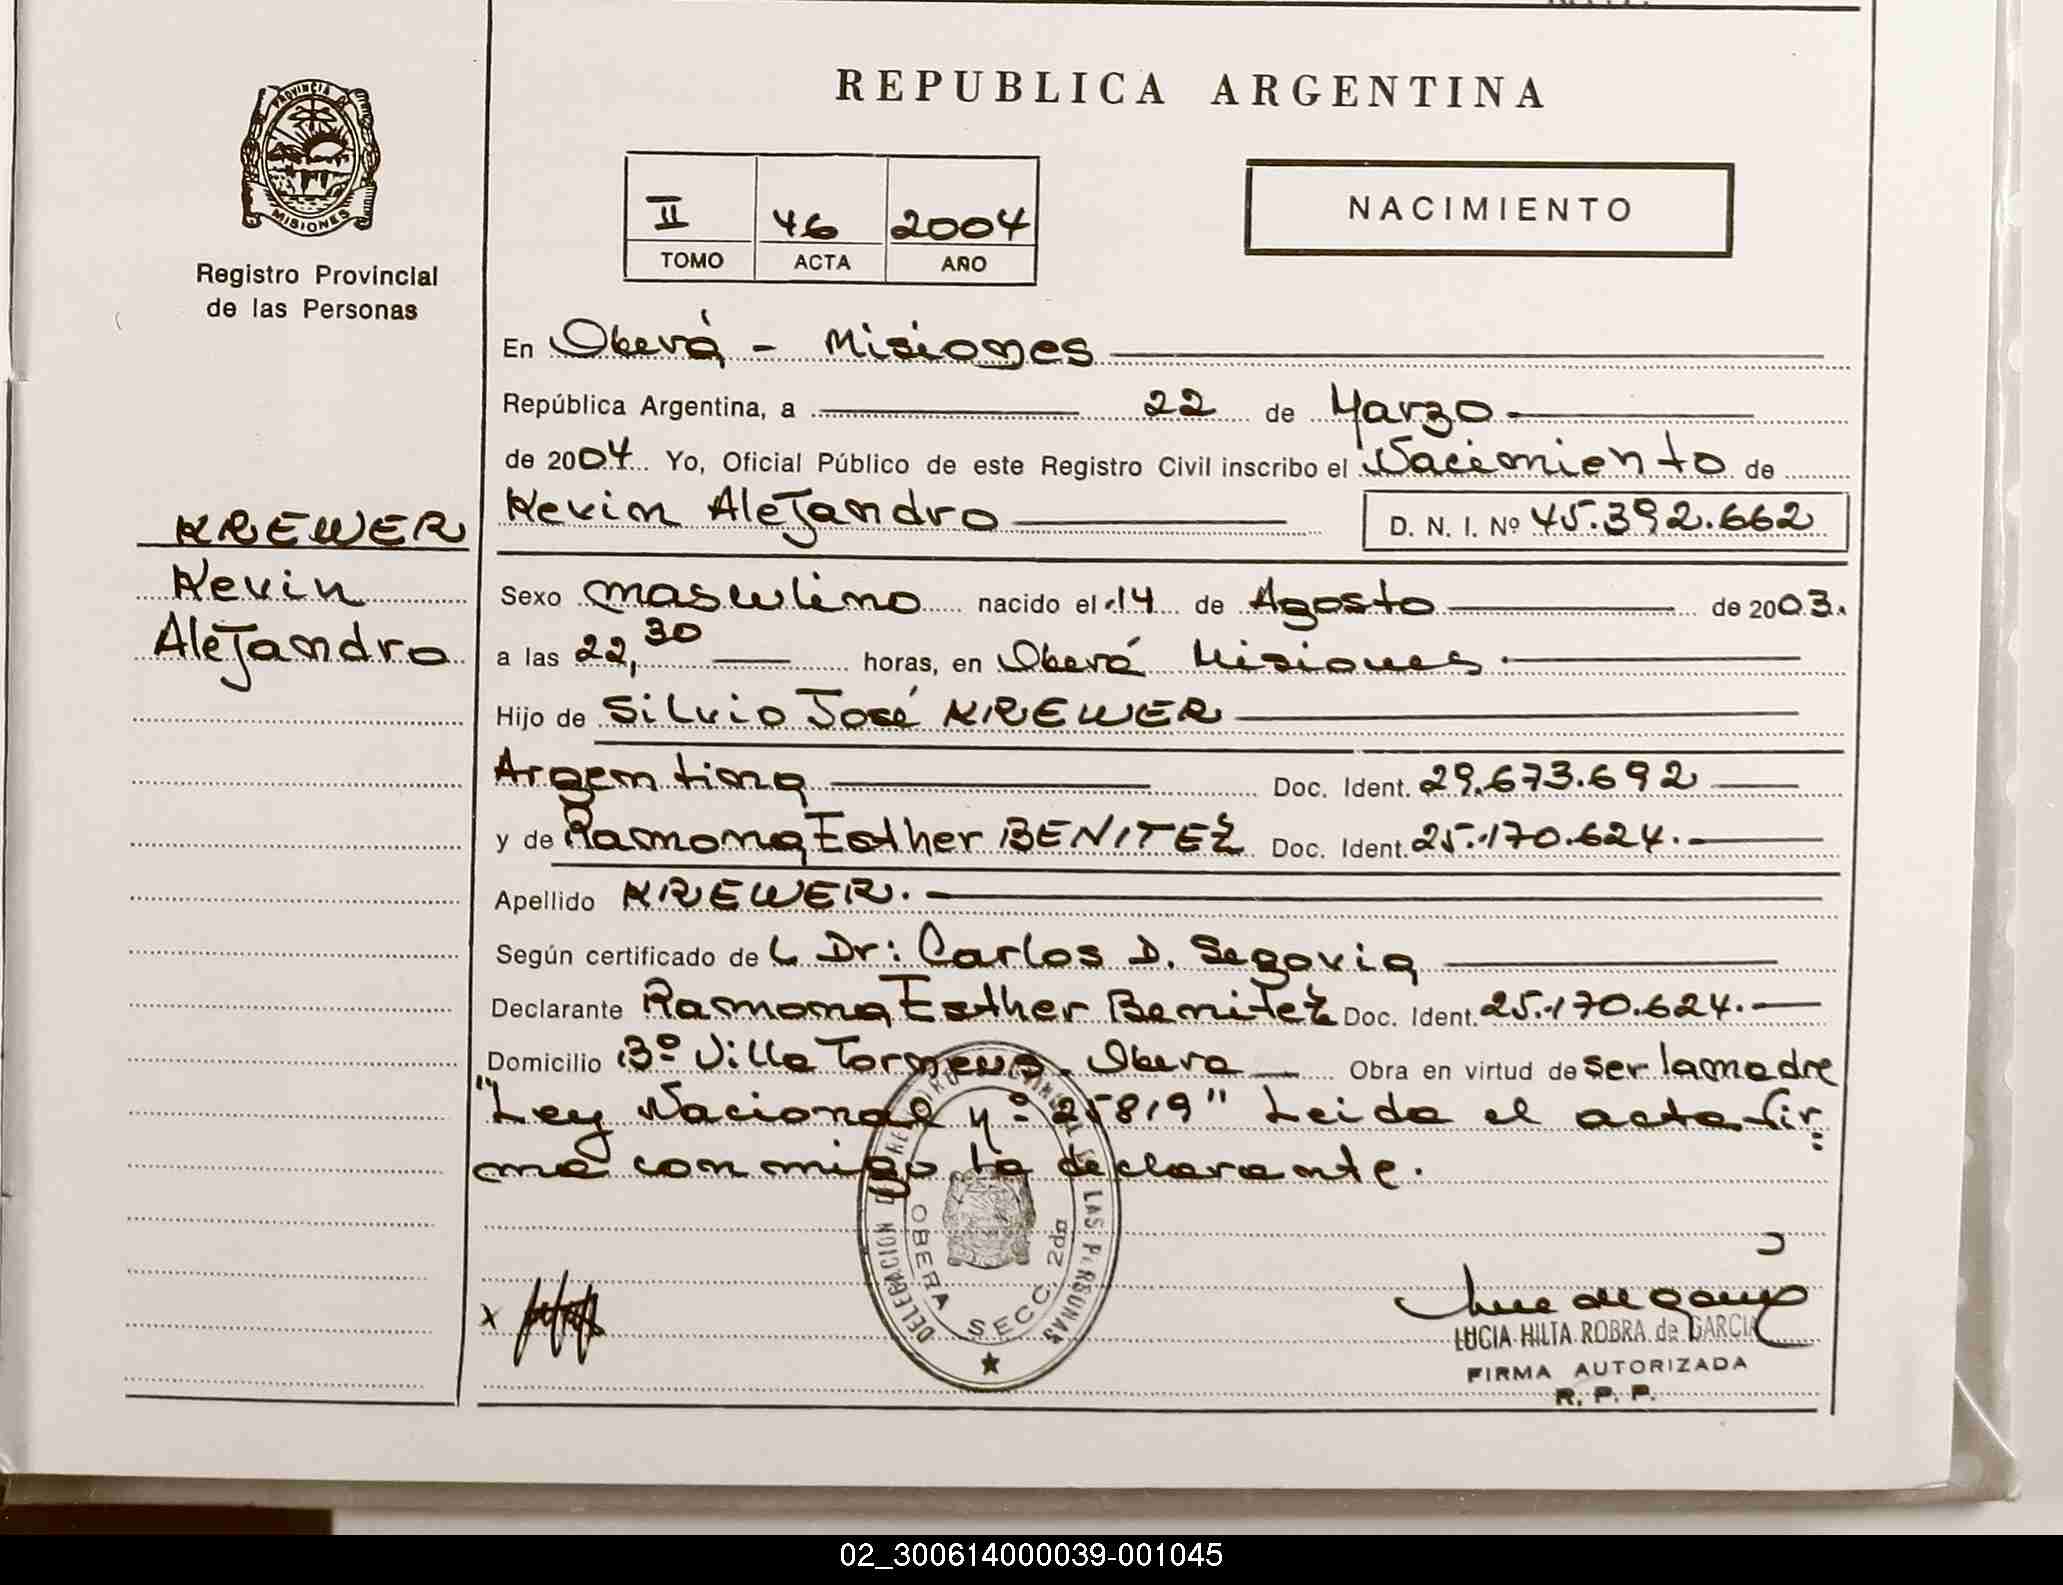 REPUBLICA ARGENTINA
PROVINCIA D
MISIONES
Registro Provincial
de las Personas
II 46 2004
TOMO ACTA AÑO
NACIMIENTO
En Oberá - Misiones
República Argentina, a 22 de Marzo
de 2004 Yo, Oficial Público de este Registro Civil inscribo el Nacimiento de
KREWER
Kevin
Alejandro
Kevin Alejandro D. N. I. Nº 45.392.662
Sexo masculino nacido el 14 de Agosto de 2003.
a las 22,30 horas, en Oberá Misiones
Hijo de Silvio José KREWER
Argentina Doc. Ident. 29.673.692
y de Ramona Esther BENITEZ Doc. Ident. 25.170.624.
Apellido KREWER.
Según certificado de L Dr: Carlos D. Segovia
Declarante Ramona Esther Benitez Doc. Ident. 25.170.624.
Domicilio Bº Villa Torneus. Obera Obra en virtud de ser la madre
"Ley Nacional nº 25819" Leida el acta fir
ma conmigo la declarante.
DELEGACION LAS PERSONAS
OBERA SECC. 2da
x
LUCIA HILTA ROBRA de GARCIA
FIRMA AUTORIZADA
R. P. P.
02_300614000039-001045